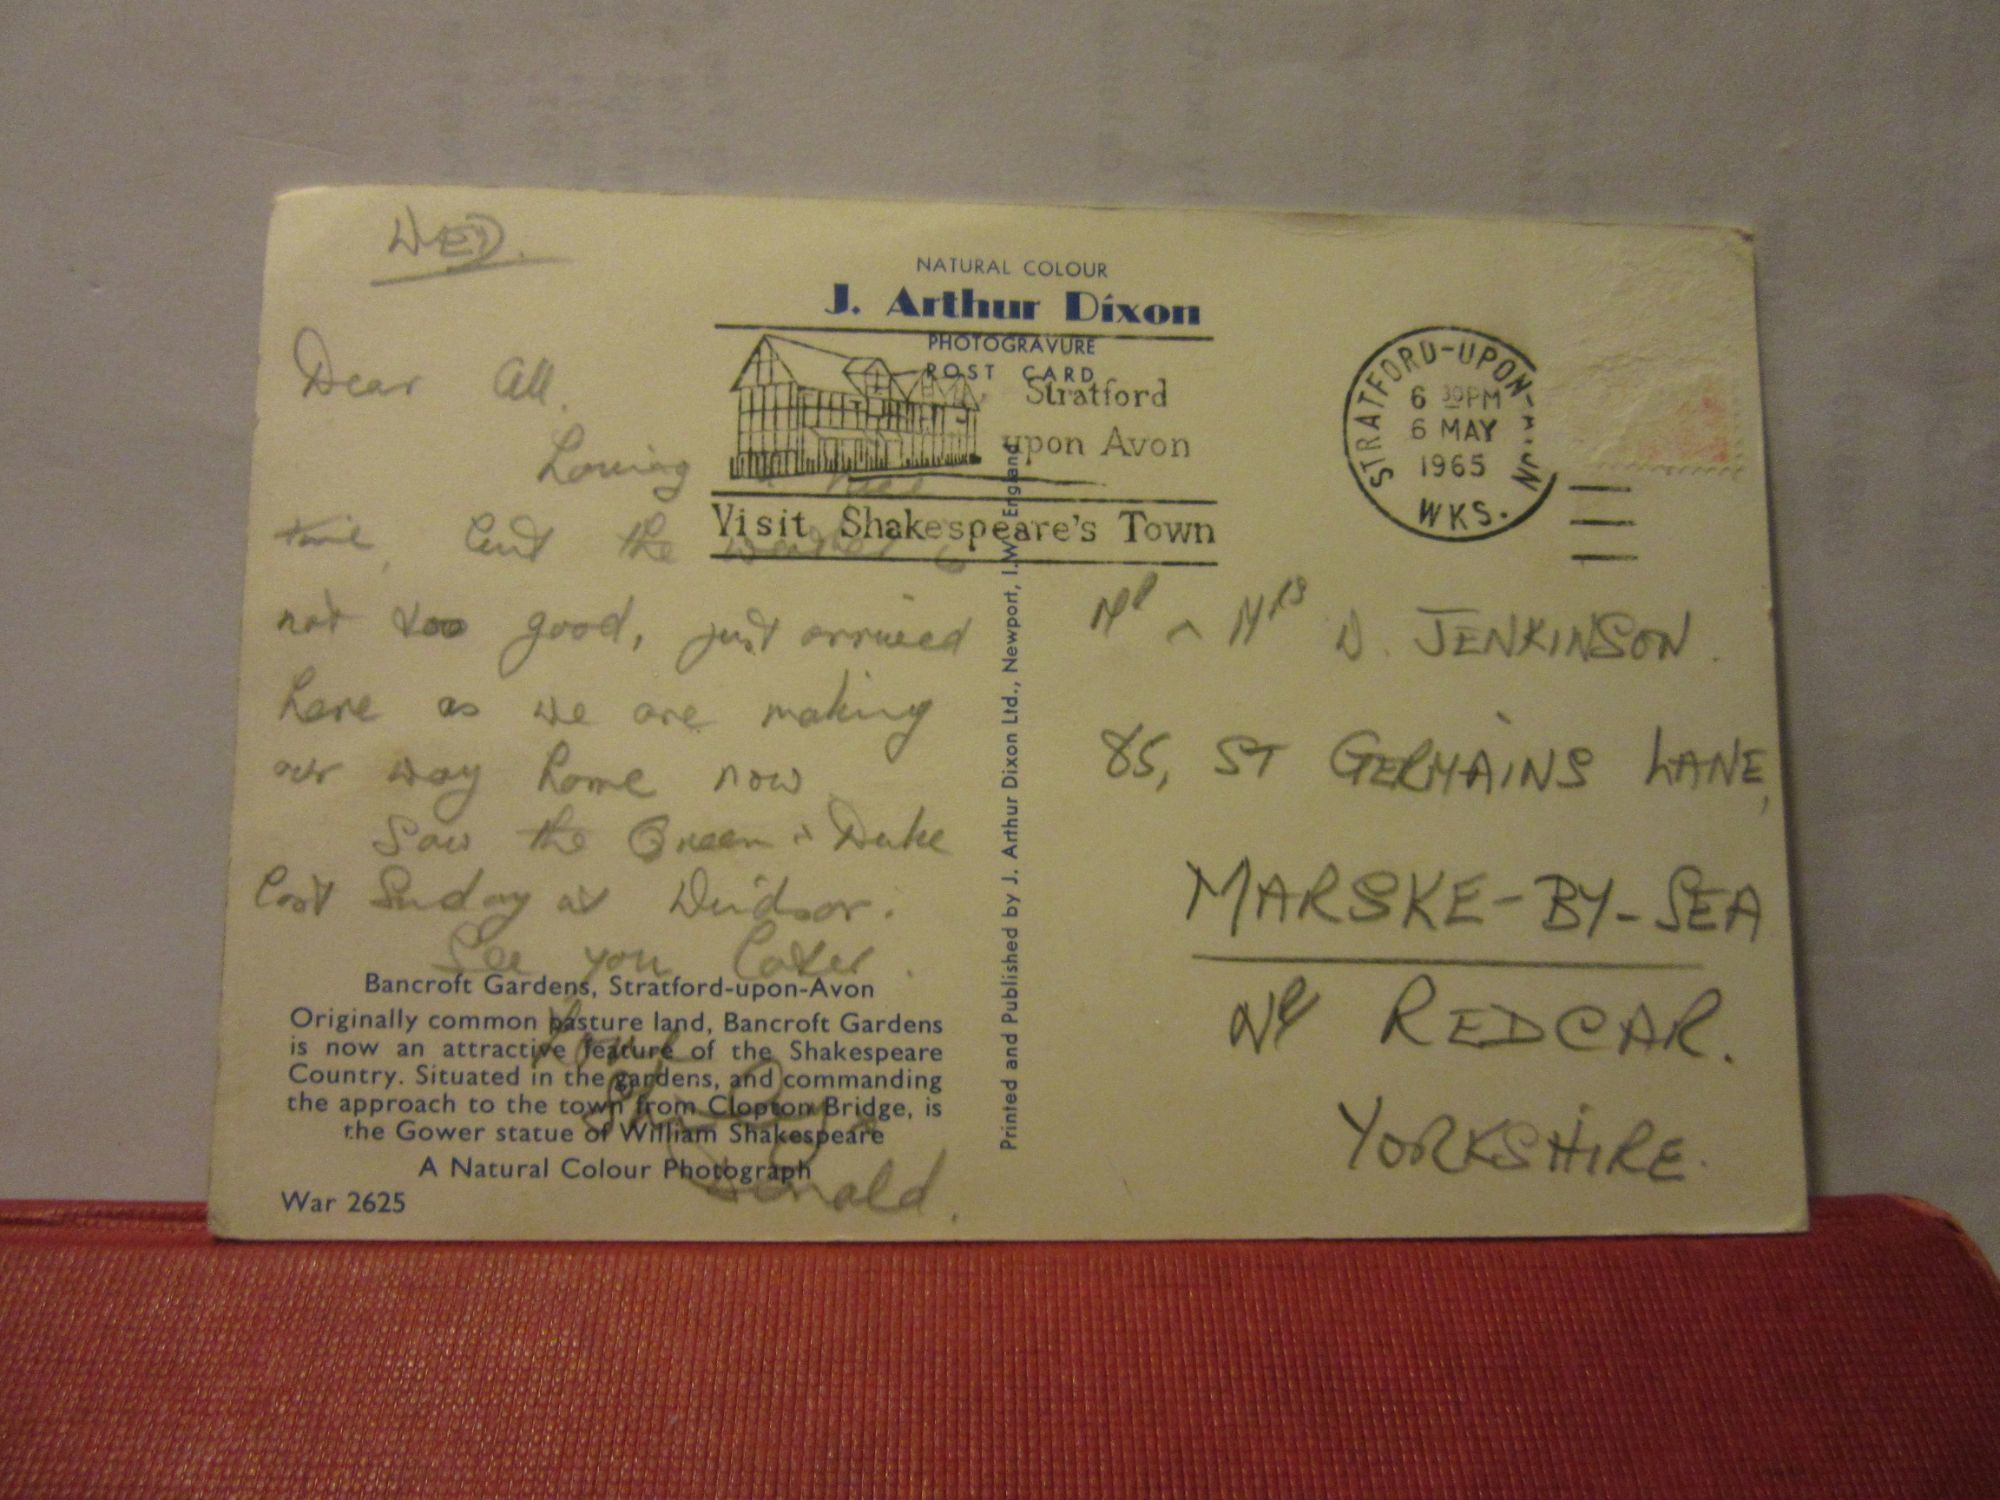 WED.
Dear All.
Having a nice
time, but the weather is
not too good, just arrived
here as we are making
our way home now
Saw the Queen & Duke
last Sunday at Windsor.
See you later.
Donald.
NATURAL COLOUR
J. Arthur Dixon
PHOTOGRAVURE
POST CARD
Stratford
upon Avon
Visit Shakespeare's Town
STRATFORD-UPON-AVON
6 30PM
6 MAY
1965
WKS.
Mr & Mrs D. JENKINSON.
85, ST GERMAINS LANE,
MARSKE-BY-SEA
Nr REDCAR.
YORKSHIRE.
Bancroft Gardens, Stratford-upon-Avon
Originally common pasture land, Bancroft Gardens
is now an attractive feature of the Shakespeare
Country. Situated in the gardens, and commanding
the approach to the town from Clopton Bridge, is
the Gower statue of William Shakespeare
A Natural Colour Photograph
War 2625
Printed and Published by J. Arthur Dixon Ltd., Newport, I.W. England